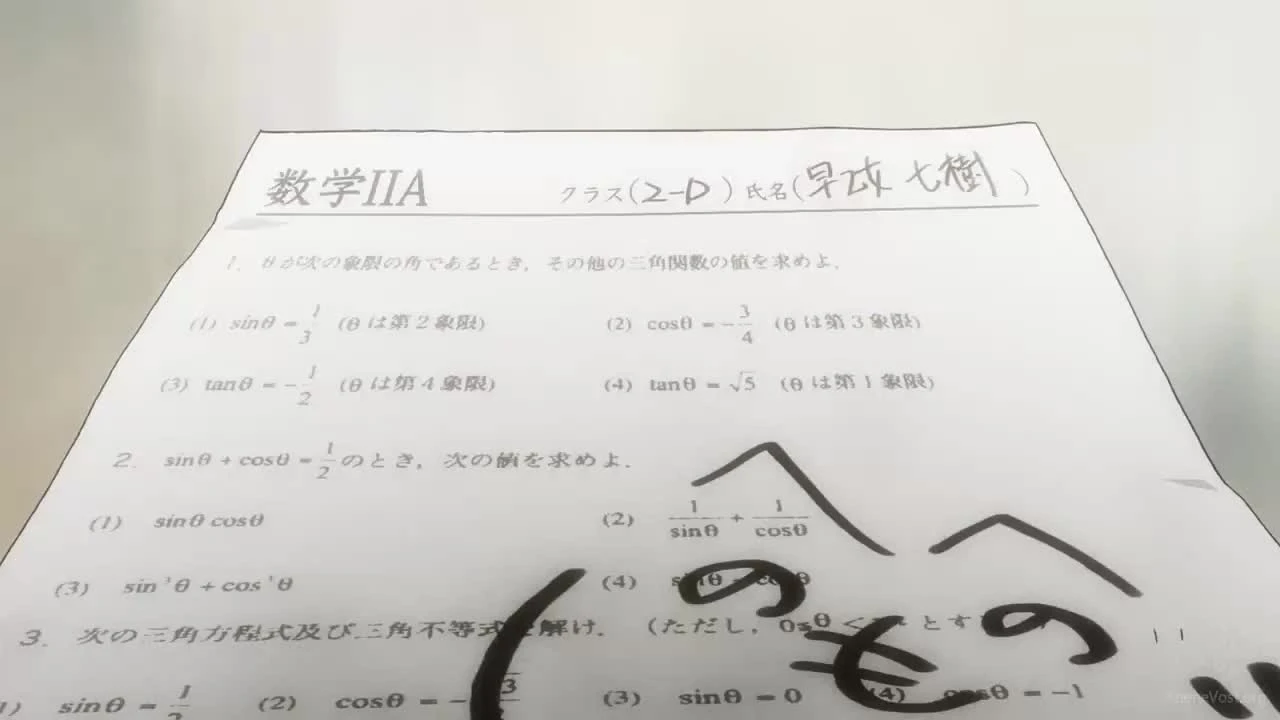 数学IIA クラス(2-D)氏名(早坂 七樹)
1. θが次の象限の角であるとき, その他の三角関数の値を求めよ.
(1) sinθ = 1/3 (θ は第 2 象限) (2) cosθ = -3/4 (θ は第 3 象限)
(3) tanθ = -1/2 (θ は第 4 象限) (4) tanθ = √5 (θ は第 1 象限)
2. sinθ + cosθ = 1/2 のとき, 次の値を求めよ.
(1) sinθ cosθ (2) 1/sinθ + 1/cosθ
(3) sin³θ + cos³θ (4) sinθ - cosθ
3. 次の三角方程式及び三角不等式を解け. (ただし,
(1) sinθ = 1/2 (2) cosθ = - (3) sinθ = 0 (4) cosθ = -1
へ へ
の の
も